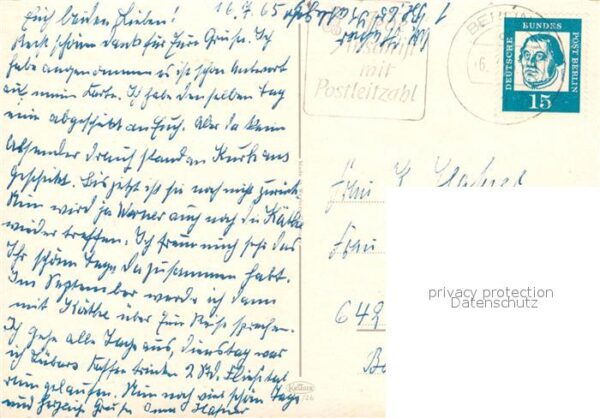 Euch beiden Lieben! 16.7.65
Recht schönen Dank für Eure Grüße. Ich
habe angenommen es ist schon Antwort
auf mein Karte. Ich habe denselben Tag
eine abgeschickt an Euch. Aber da kein
Absender drauf stand an Kurk aus
geschickt. Bis jetzt ist sie noch nicht zurück.
Nun wird ja Werner auch noch die Käthe
wieder treffen. Ich freue mich sehr das
Ihr schöne Tage da zusammen habt.
Im September werde ich dann
mit Käthe über Eure Reise sprechen.
Ich gehe alle Tage aus, Dienstag war
ich Lübars Kaffee trinken 2 Std. Fließtal
rum gelaufen. Nun noch viel schöne Tage
und herzliche Grüße Anna
mit
Postleitzahl
BERLIN
DEUTSCHE BUNDES POST BERLIN
15
Frau
Frau
649
privacy protection
Datenschutz
Krüger